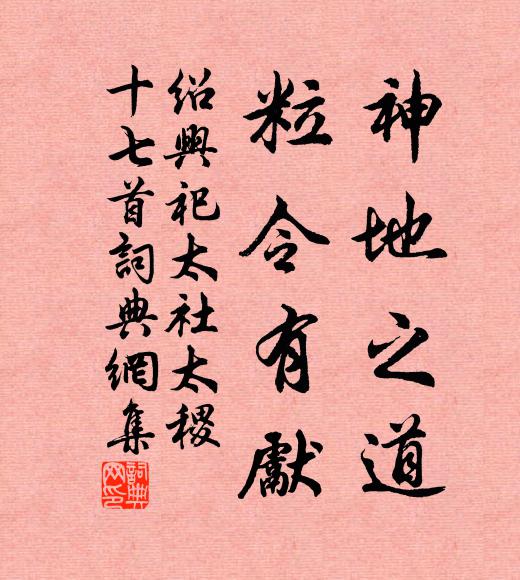 神地之道
粒令有獻
紹興祀太社太稷
十七首詞典網集
詞典网印